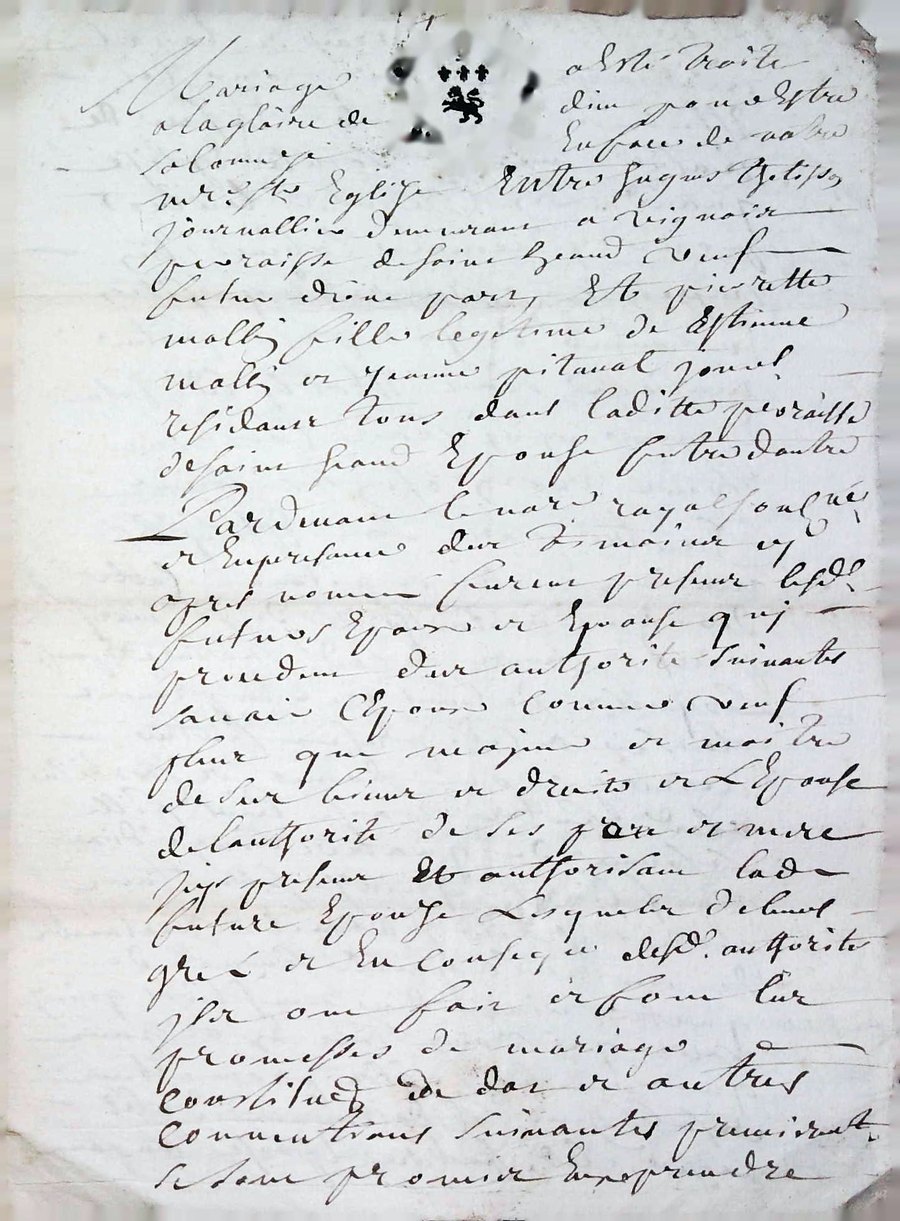 Mariage a Esté traité
a la gloire de dieu pour Estre
solemnizé En face de notre
mere Ste Eglize Entre hugues
journallier demeurant a
parroisse de saint heand veuf
futur d'une part, Et pierrette
mallin fille legitime de Estienne
mallin et jeanne pitaval jourl
residants tous dans laditte parroisse
de saint heand Epouse future dautre
Pardevant le nore royal sousné
et En presence des temoins cy
apres nommés furent presents lesds
futurs Epoux et Epouse quj
procedent des authorités suivantes
savoir l'Epoux comme veuf
plus que majeur et maitre
de ses biens et droits et L'Epouse
de l'authorité de ses pere et mere
jcy presents Et authorisant lade
future Epouse Lesquels de leur
gré et En conseqce desd. authorités
jls ont fait et font les
promesses de mariage
constitué de dot et autres
conventions suivantes premiremt
se sont promis prendre